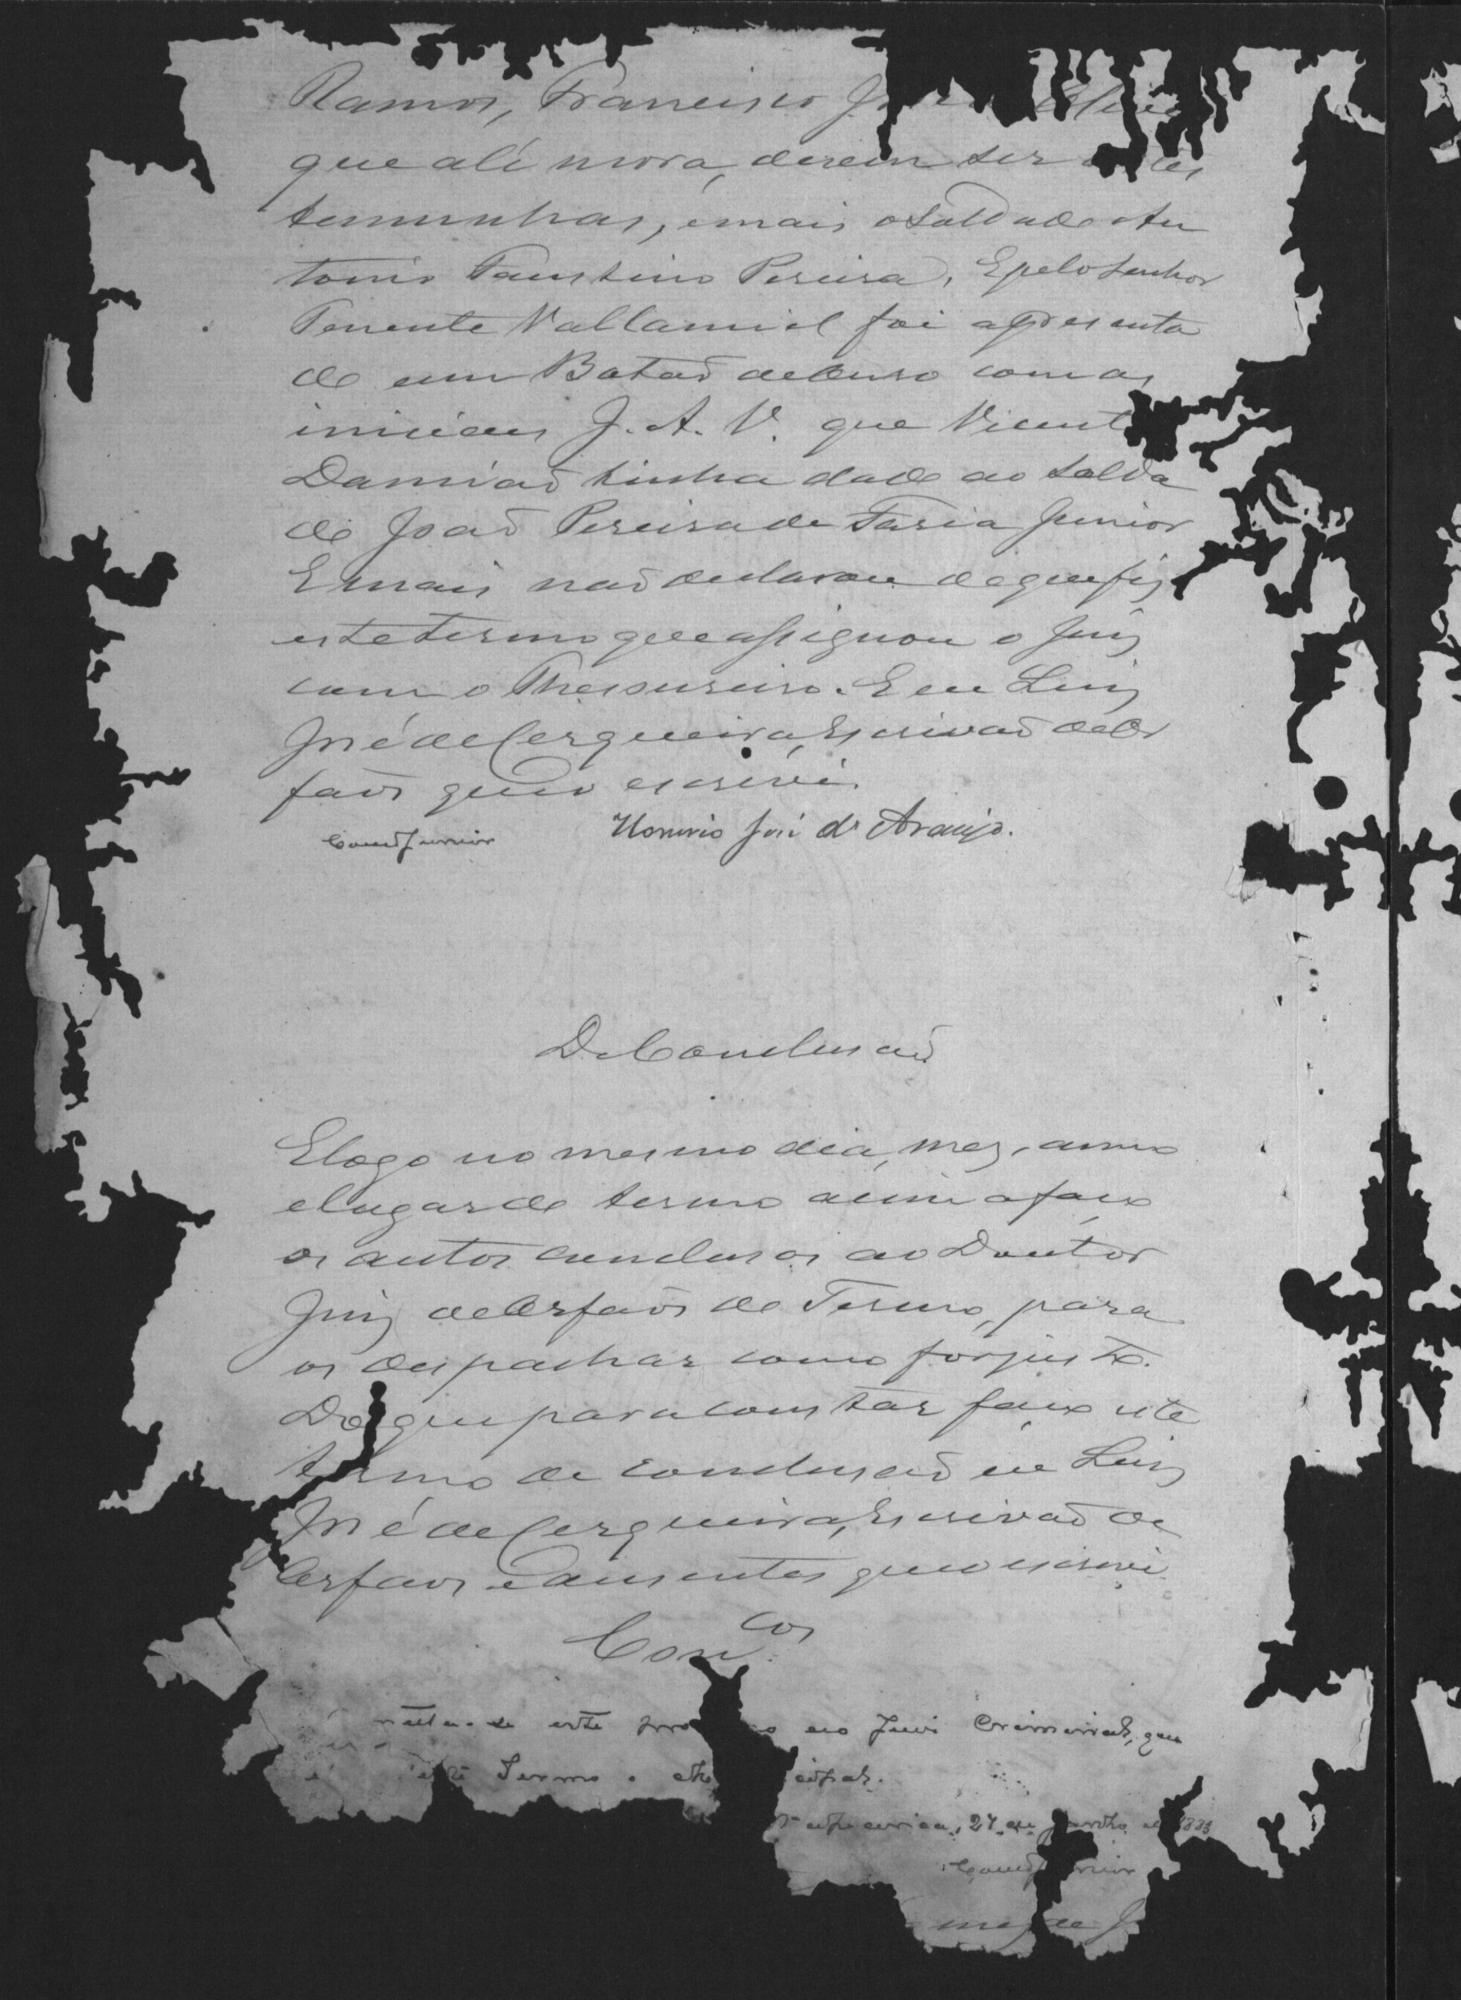 Ramos, Francisco José
que ali mora, devem ser as tes
temunhas, e mais o Soldado An
tonio Faustino Pereira. E pelo Senhor
Tenente Vallamiel foi apresenta
do um Botão de Ouro com as
iniciaes J. A. V. que Vicente
Damião tinha dado ao Solda
do João Pereira de Faria Junior
E mais não declarou do que fiz
este termo que assignou o Juiz
com o Thesoureiro. E eu Luiz
José de Cerqueira, Escrivão de Or
fãos que o escrevi.
Junior Honorio José de Araujo.
De Conclusão
E logo no mesmo dia, mez, anno
e lugar do termo acima faço
os autos conclusos ao Doutor
Juiz de Orfãos do Termo, para
os despachar como for justo.
Do que para constar faço este
termo de conclusão eu Luiz
José de Cerqueira, Escrivão de
Orfãos e Ausentes que o escrevi.
Con.cos
este ao Juiz Criminal, que
Termo o
27 de Junho de
Junior